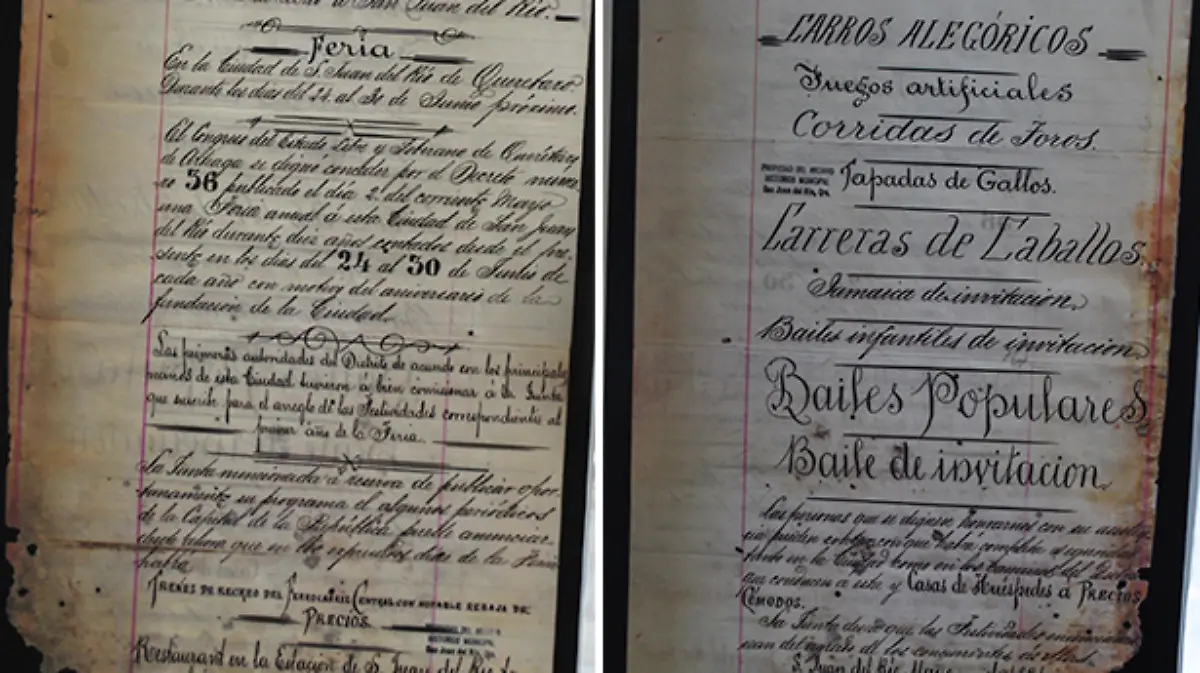 á San Juan del Río.
Feria
En la Ciudad de S. Juan del Río de Querétaro
Durante los dias del 24 al 30 de Junio próximo.
El Congreso del Estado Libre y Soberano de Querétaro
de Arteaga se dignó conceder por el Decreto núme-
ro 36 publicado el día 2 del corriente Mayo
una Feria anual á esta Ciudad de San Juan
del Río durante diez años contados desde el pre-
sente en los dias del 24 al 30 de Junio de
cada año con motivo del aniversario de la
fundación de la Ciudad.
Las primeras autoridades del Distrito de acuerdo con los principales
de esta Ciudad tuvieron á bien comisionar á la Junta
que suscribe para el arreglo de las Festividades correspondientes al
primer año de la Feria.
La Junta mencionada á reserva de publicar opor-
tunamente su programa el algunos periódicos
de la Capital de la República puede anunciar
desde ahora que en los repetidos dias de la Feria
habrá
TRENES DE RECREO DEL FERROCARRIL CENTRAL CON NOTABLE REBAJA DE
PRECIOS.
Restaurant en la Estación de S. Juan del Río
CARROS ALEGÓRICOS
Fuegos artificiales
Corridas de Toros.
PROPIEDAD DEL ARCHIVO
HISTORICO MUNICIPAL
San Juan del Río, Qro.
Tapadas de Gallos.
Carreras de Caballos.
Jamaica de invitacion.
Bailes infantiles de invitacion
Bailes Populares
Baile de invitacion.
Las personas que se dignen honrarnos con su asisten-
cia pueden estar que habrá completa seguridad
tanto en la Ciudad como en los caminos del
que conducen a esta y CASAS de Huéspedes á PRECIOS
CÓMODOS.
La Junta desea que las Festividades
sean del agrado de los concurrentes de ellas.
S. Juan del Río, Mayo